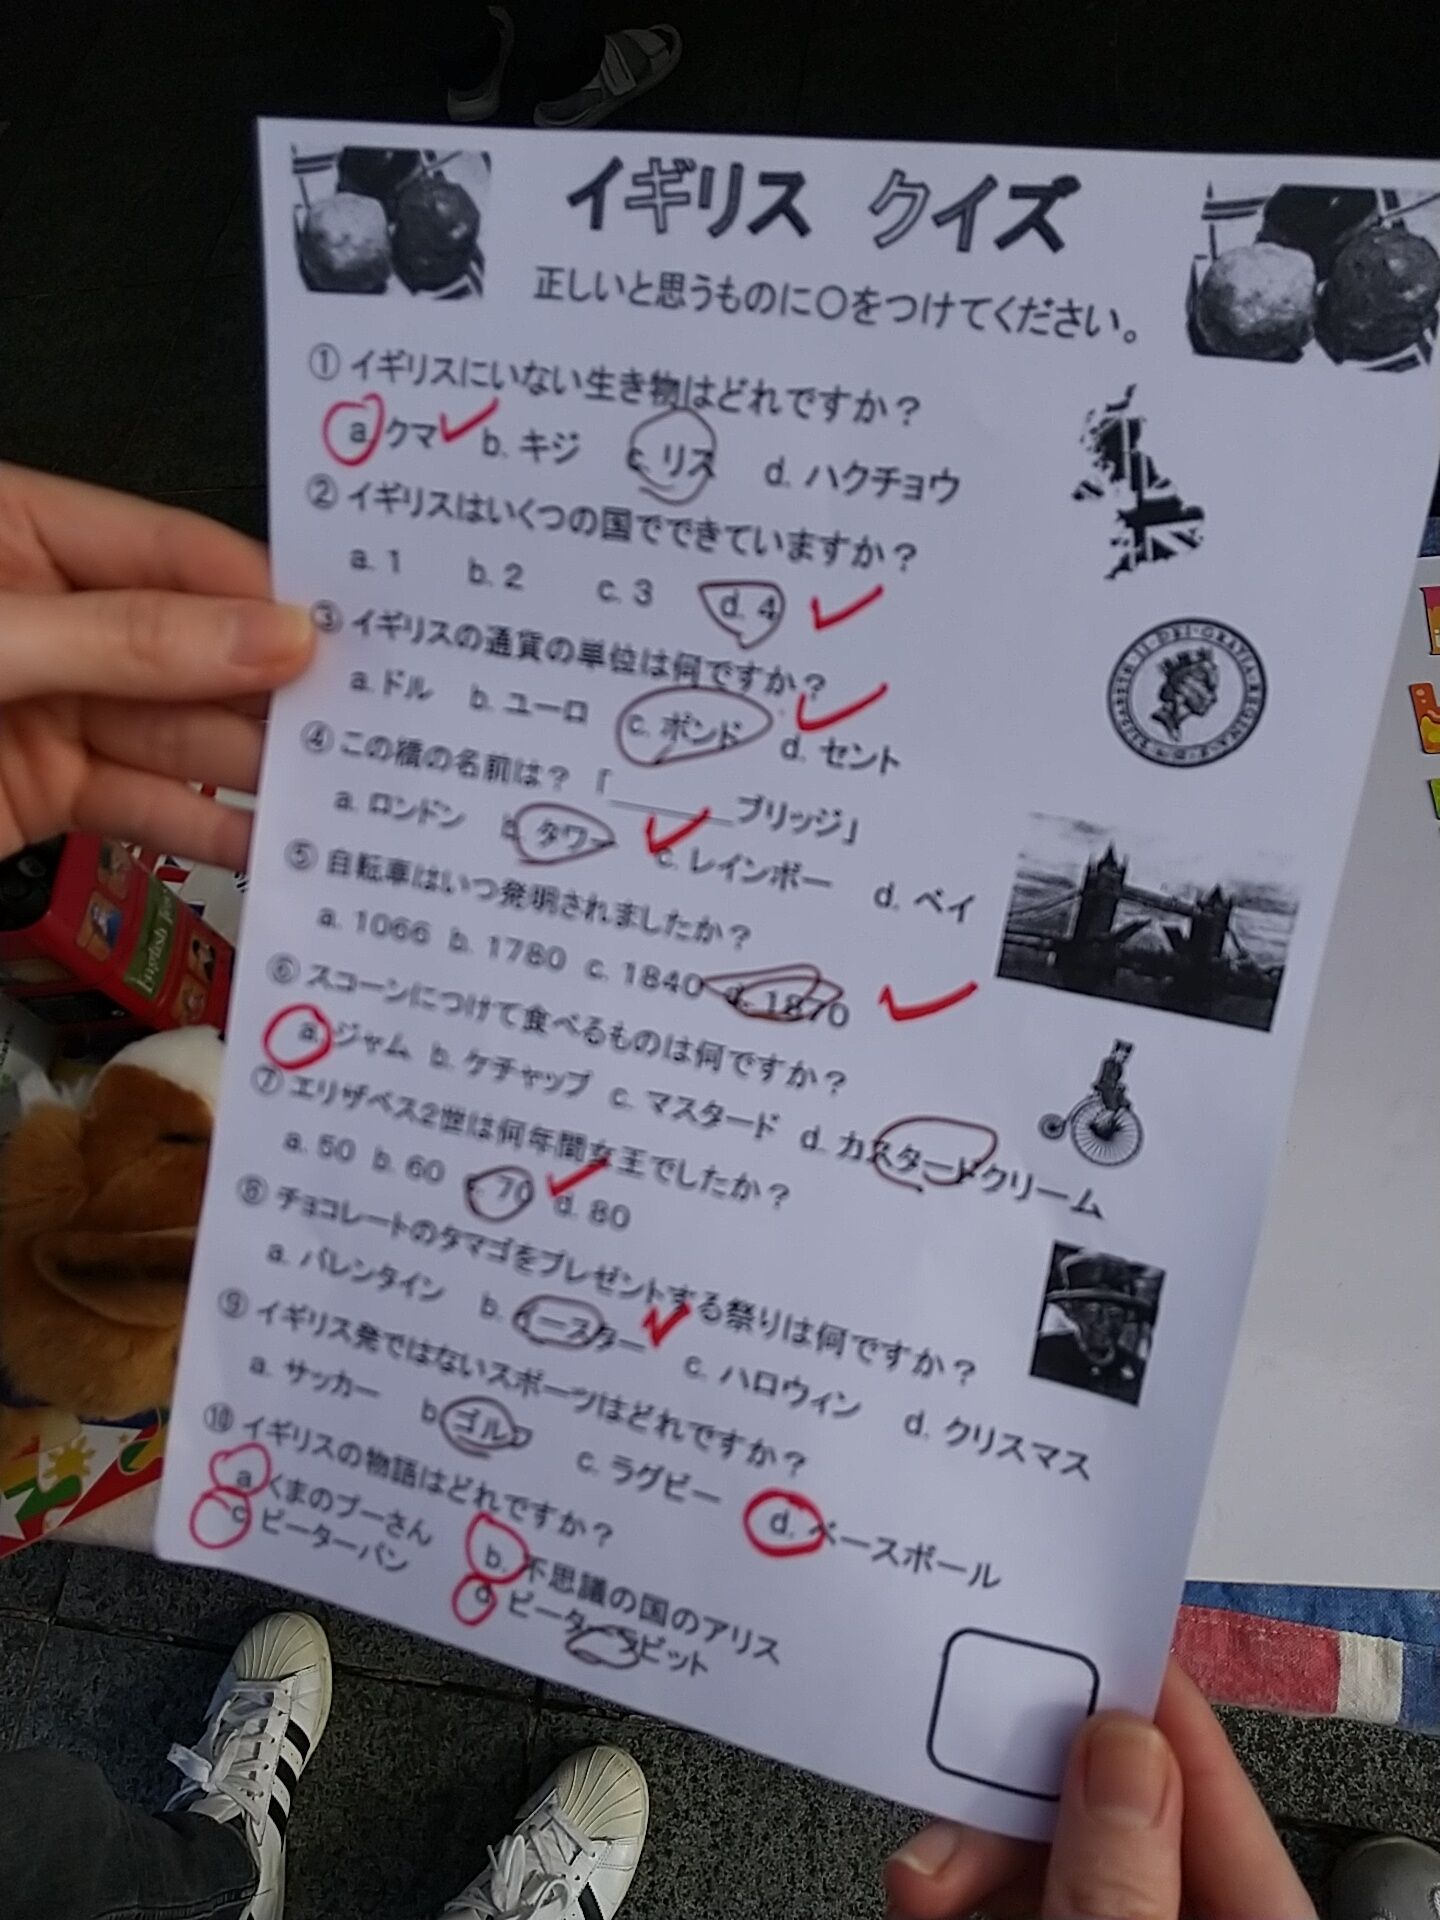 イギリス クイズ
正しいと思うものに〇をつけてください。
① イギリスにいない生き物はどれですか？
a クマ b. キジ c. リス d. ハクチョウ
② イギリスはいくつの国でできていますか？
a. 1 b. 2 c. 3 d. 4
③ イギリスの通貨の単位は何ですか？
a. ドル b. ユーロ c. ポンド d. セント
④ この橋の名前は？「______ブリッジ」
a. ロンドン b. タワー c. レインボー d. ベイ
⑤ 自転車はいつ発明されましたか？
a. 1066 b. 1780 c. 1840 d. 1870
⑥ スコーンにつけて食べるものは何ですか？
a. ジャム b. ケチャップ c. マスタード d. カスタードクリーム
⑦ エリザベス2世は何年間女王でしたか？
a. 50 b. 60 c. 70 d. 80
⑧ チョコレートのタマゴをプレゼントする祭りは何ですか？
a. バレンタイン b. イースター c. ハロウィン d. クリスマス
⑨ イギリス発ではないスポーツはどれですか？
a. サッカー b ゴルフ c. ラグビー d. ベースボール
⑩ イギリスの物語はどれですか？
a くまのプーさん b. 不思議の国のアリス
c ピーターパン d ピーターラビット
ELIZABETH II DEI GRATIA REGINA F.D.
English Tea